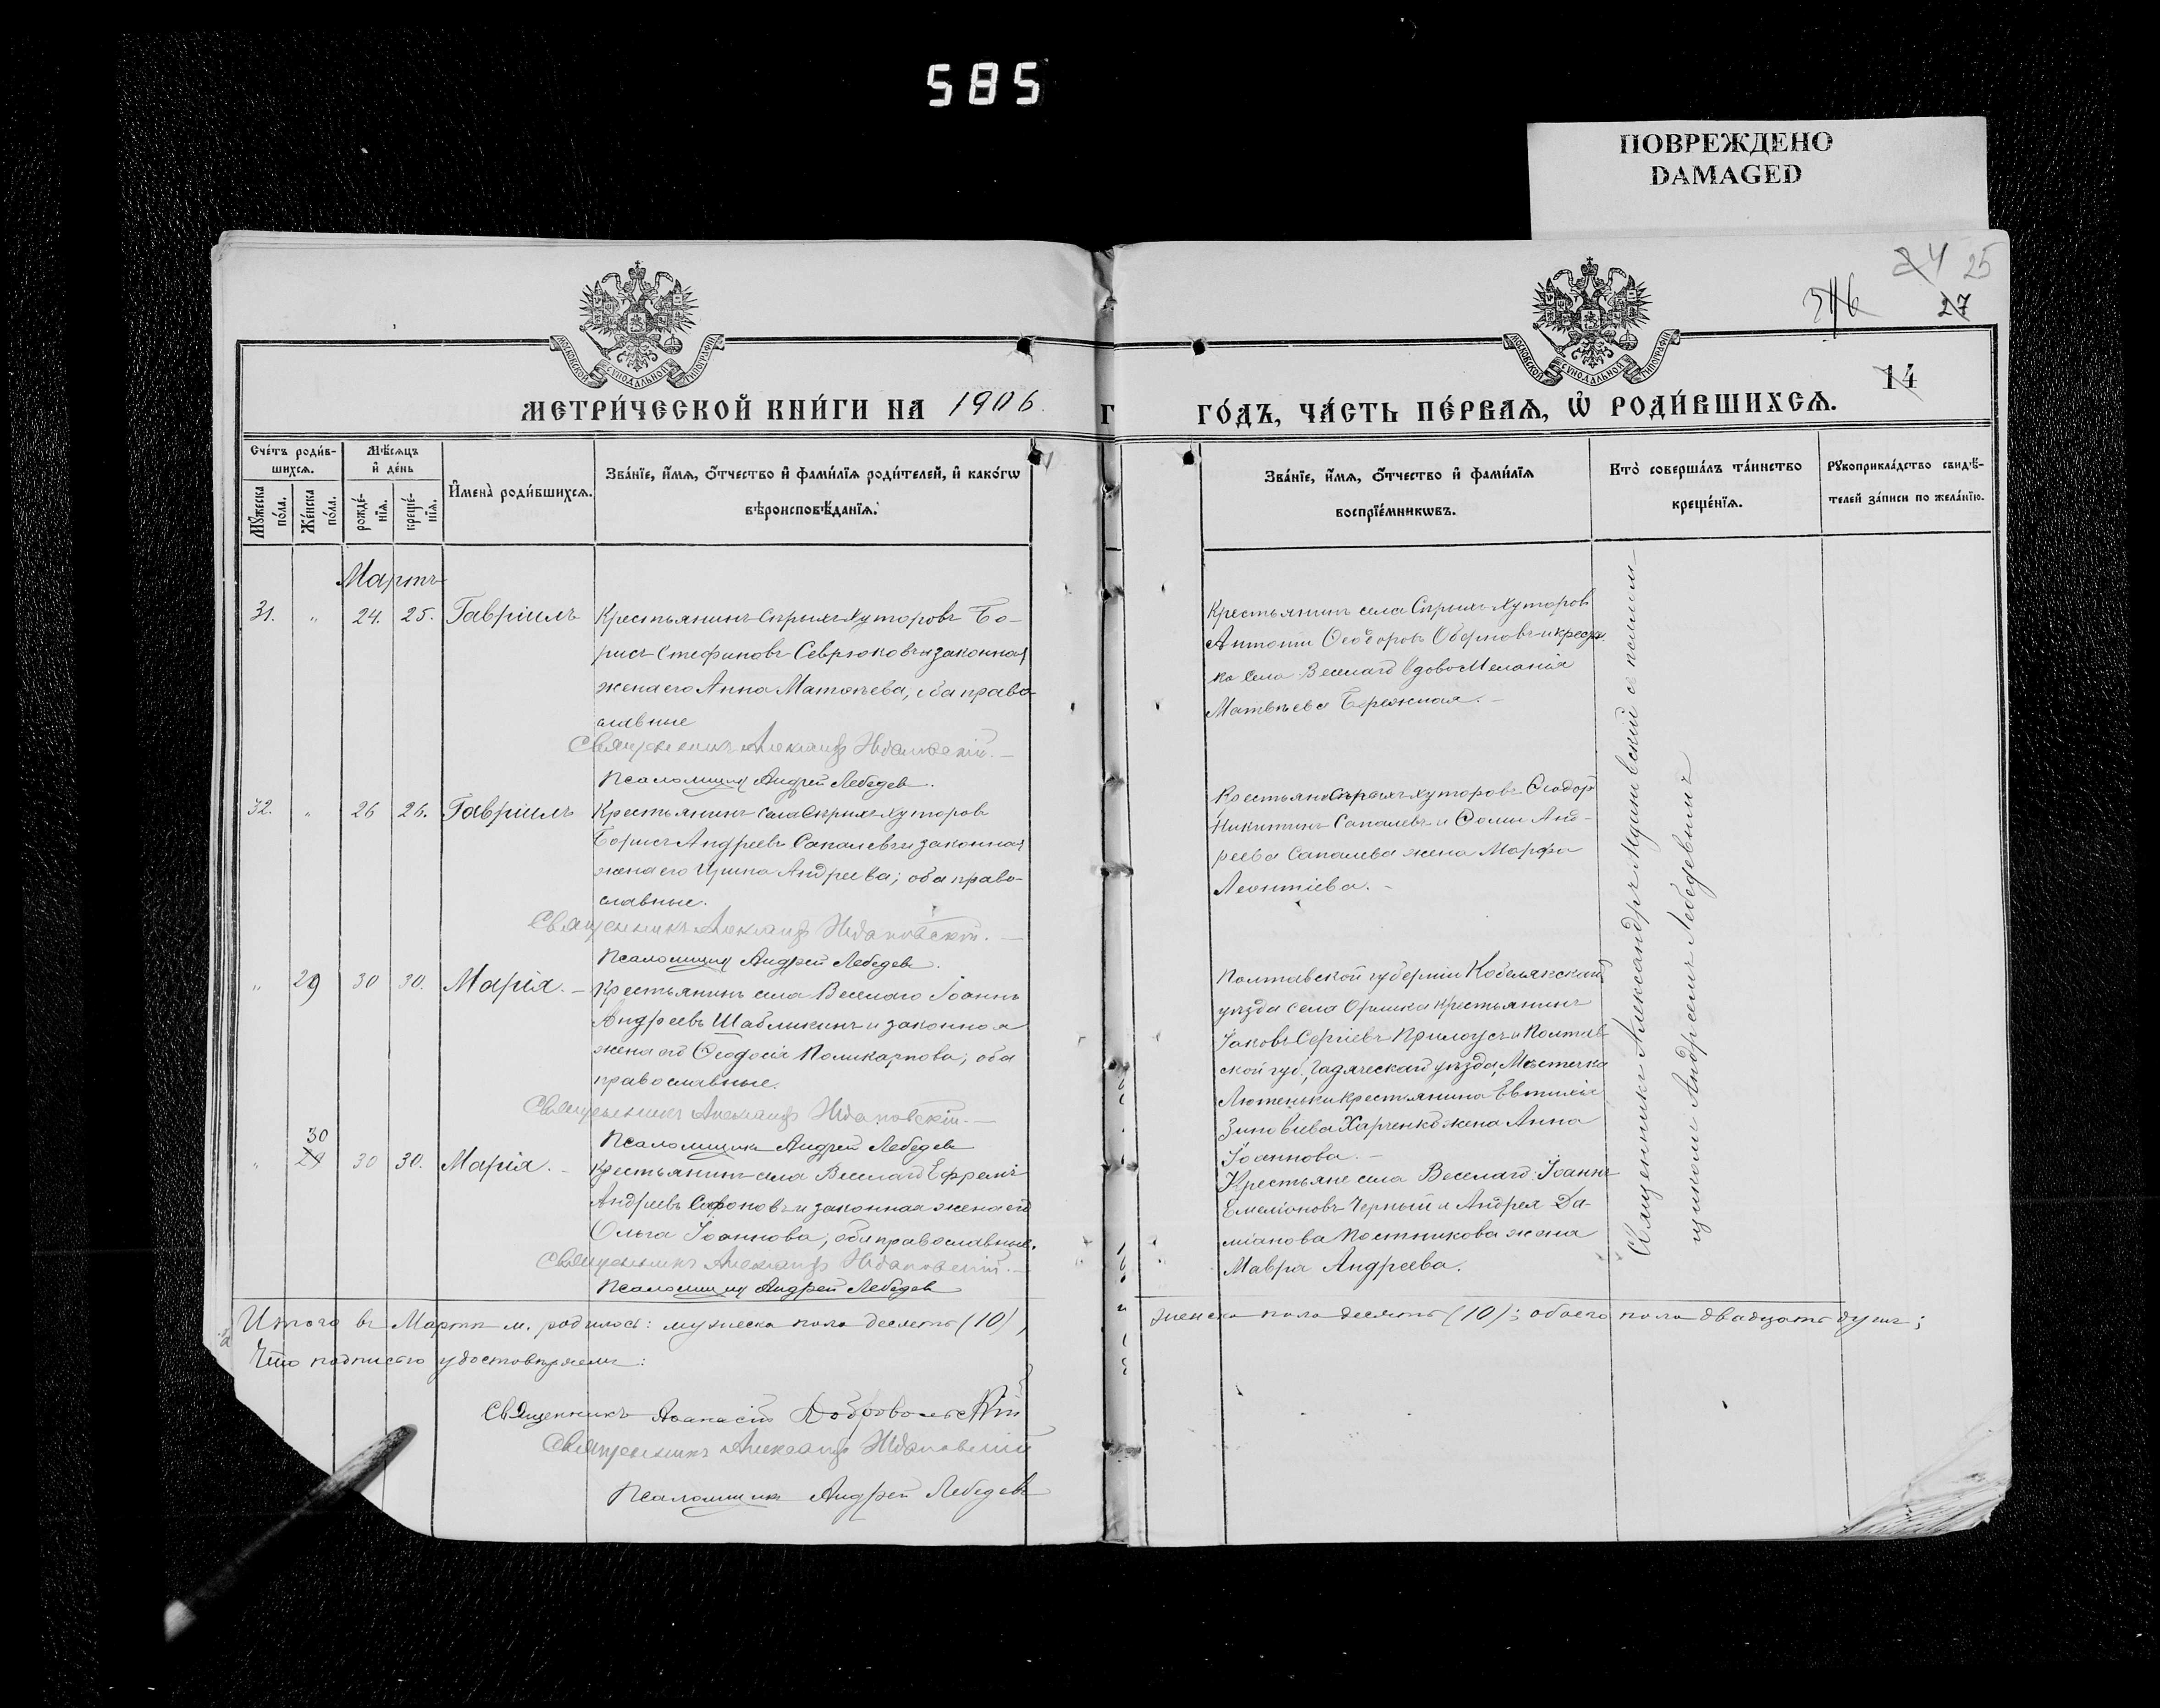 585
ПОВРЕЖДЕНО
DAMAGED
24 25
27
14
МОСКОВСКОЙ СѴНОДАЛЬНОЙ ТИПОГРАФІИ
МОСКОВСКОЙ СѴНОДАЛЬНОЙ ТИПОГРАФІИ
МЕТРИ́ЧЕСКОЙ КНИ́ГИ НА 1906
Г
ГО́ДЪ, ЧА́СТЬ ПЕ́РВАѦ, Ѡ҆ РОДИ́ВШИХСѦ.
Сче́тъ роди́в-
шихсѧ.
Мꙋ́жеска по́ла.
Же́нска по́ла.
Мѣ́сѧцъ
и҆ де́нь
рожде́-
нїѧ.
креще́-
нїѧ.
И҆мена̀ роди́вшихсѧ.
Зва́нїе, и҆́мѧ, ѻ҆́тчество и҆ фами́лїѧ роди́телей, и҆ како́гѡ
вѣроисповѣ́данїѧ.
Зва́нїе, и҆́мѧ, ѻ҆́тчество и҆ фами́лїѧ
воспрїе́мникѡвъ.
Кто̀ соверша́лъ та́инство
креще́нїѧ.
Рꙋкоприкла́дство свидѣ́-
телей за́писи по жела́нїю.
Мартъ
31. " 24. 25. Гавріилъ
Крестьянинъ Сѣрыхъ Хуторовъ Бо-
рисъ Стефановъ Севрюковъ и законная
жена его Анна Матѳеева, оба право-
славные
Священникъ Александръ Ждановскій.
Псаломщикъ Андрей Лебедев.
Крестьянинъ села Сѣрыхъ Хуторовъ
Антоній Ѳеодоровъ и крестьян-
ка села Веселаго вдова Меланія
Матвѣева Бережная.
32. " 26 26. Гавріилъ
Крестьянинъ села Сѣрыхъ Хуторовъ
Борисъ Андреевъ Сапалевъ и законная
жена его Ирина Андреева; оба право-
славные.
Священникъ Александръ Ждановскій.
Псаломщикъ Андрей Лебедев.
Крестьяне Сѣрыхъ Хуторовъ Ѳеодоръ
Никитинъ Сапалевъ и Ѳомы Анд-
реева Сапалева жена Марфа
Леонтіева.
" 29 30 30. Марія.
Крестьянинъ села Веселаго Іоаннъ
Андреевъ Шабликинъ и законная
жена его Ѳеодосія Поликарпова; оба
православные.
Священникъ Александръ Ждановскій.
Псаломщикъ Андрей Лебедев
Полтавской губерніи Кобелякскаго
уѣзда села Орлика крестьянинъ
Іаковъ Сергіевъ Прилоусъ и Полтав-
ской губ., Гадяческаго уѣзда, Мѣстечка
Лютеньки крестьянина Евтихія
Зиновіева Харченко жена Анна
Іоаннова.
30
" 29 30 30. Марія.
Крестьянинъ села Веселаго Ефремъ
Андреевъ Сафоновъ и законная жена его
Ольга Іоаннова, оба православные.
Священникъ Александръ Ждановскій.
Псаломщикъ Андрей Лебедев
Крестьяне села Веселаго Іоаннъ
Емеліановъ Черный и Андрея Да-
міанова Постникова жена
Мавра Андреева.
Священникъ Александръ Ждановскій с псалом-
щикомъ Андреемъ Лебедевымъ
Итого въ Мартѣ м. родилось: мужеска пола десять (10),
женска пола десять (10); обоего пола двадцать душъ;
Что подписью удостовѣряемъ:
Священникъ Аѳанасій Добровольскій
Священникъ Александръ Ждановскій
Псаломщикъ Андрей Лебедев